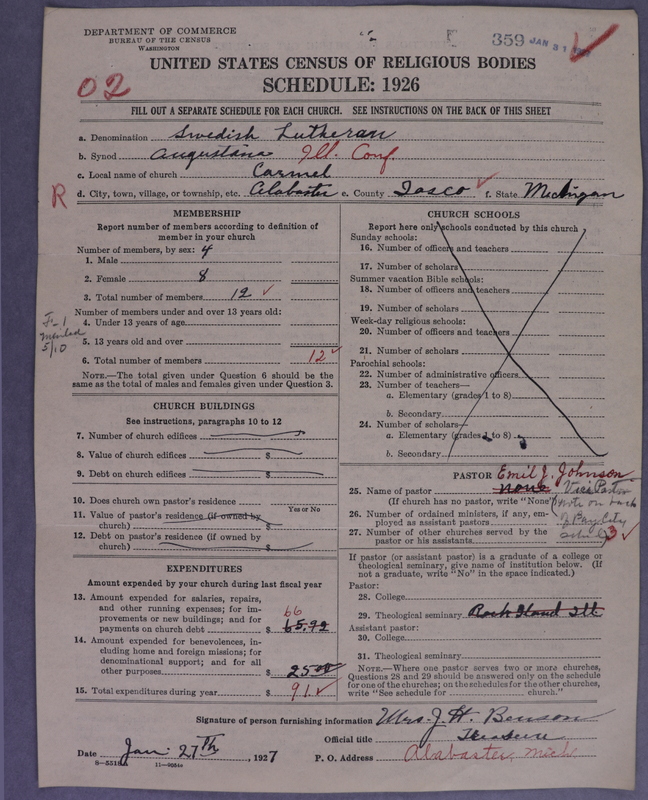 DEPARTMENT OF COMMERCE
BUREAU OF THE CENSUS
WASHINGTON
359 JAN 31
UNITED STATES CENSUS OF RELIGIOUS BODIES
02
SCHEDULE: 1926
FILL OUT A SEPARATE SCHEDULE FOR EACH CHURCH. SEE INSTRUCTIONS ON THE BACK OF THIS SHEET
a. Denomination Swedish Lutheran
b. Synod Augustana Ill. Conf.
c. Local name of church Carmel
R
d. City, town, village, or township, etc. Alabaster e. County Iosco f. State Michigan
MEMBERSHIP
Report number of members according to definition of
member in your church
Number of members, by sex: 4
1. Male
2. Female 8
3. Total number of members 12
Number of members under and over 13 years old:
4. Under 13 years of age
5. 13 years old and over
6. Total number of members 12
NOTE.—The total given under Question 6 should be the
same as the total of males and females given under Question 3.
5/10
CHURCH BUILDINGS
See instructions, paragraphs 10 to 12
7. Number of church edifices
8. Value of church edifices $
9. Debt on church edifices $
10. Does church own pastor's residence
Yes or No
11. Value of pastor's residence (if owned by
church) $
12. Debt on pastor's residence (if owned by
church) $
EXPENDITURES
Amount expended by your church during last fiscal year
13. Amount expended for salaries, repairs,
and other running expenses; for im-
provements or new buildings; and for
payments on church debt $ 65.92
66
14. Amount expended for benevolences, in-
cluding home and foreign missions; for
denominational support; and for all
other purposes $ 25.00
15. Total expenditures during year $ 91
CHURCH SCHOOLS
Report here only schools conducted by this church
Sunday schools:
16. Number of officers and teachers
17. Number of scholars
Summer vacation Bible schools:
18. Number of officers and teachers
19. Number of scholars
Week-day religious schools:
20. Number of officers and teachers
21. Number of scholars
Parochial schools:
22. Number of administrative officers
23. Number of teachers—
a. Elementary (grades 1 to 8)
b. Secondary
24. Number of scholars—
a. Elementary (grades 1 to 8)
b. Secondary
PASTOR Emil J. Johnson
25. Name of pastor none Vice Pastor
(If church has no pastor, write "None") note on back
26. Number of ordained ministers, if any, em-
ployed as assistant pastors of Bay City
27. Number of other churches served by the
pastor or his assistants 3
If pastor (or assistant pastor) is a graduate of a college or
theological seminary, give name of institution below. (If
not a graduate, write "No" in the space indicated.)
Pastor:
28. College
29. Theological seminary Rock Island Ill
Assistant pastor:
30. College
31. Theological seminary
NOTE.—Where one pastor serves two or more churches,
Questions 28 and 29 should be answered only on the schedule
for one of the churches; on the schedules for the other churches,
write "See schedule for church."
Signature of person furnishing information Mrs. J. H. Benson
Official title
Date Jan. 27th, 1927
P. O. Address Alabaster, Mich.
8—5518